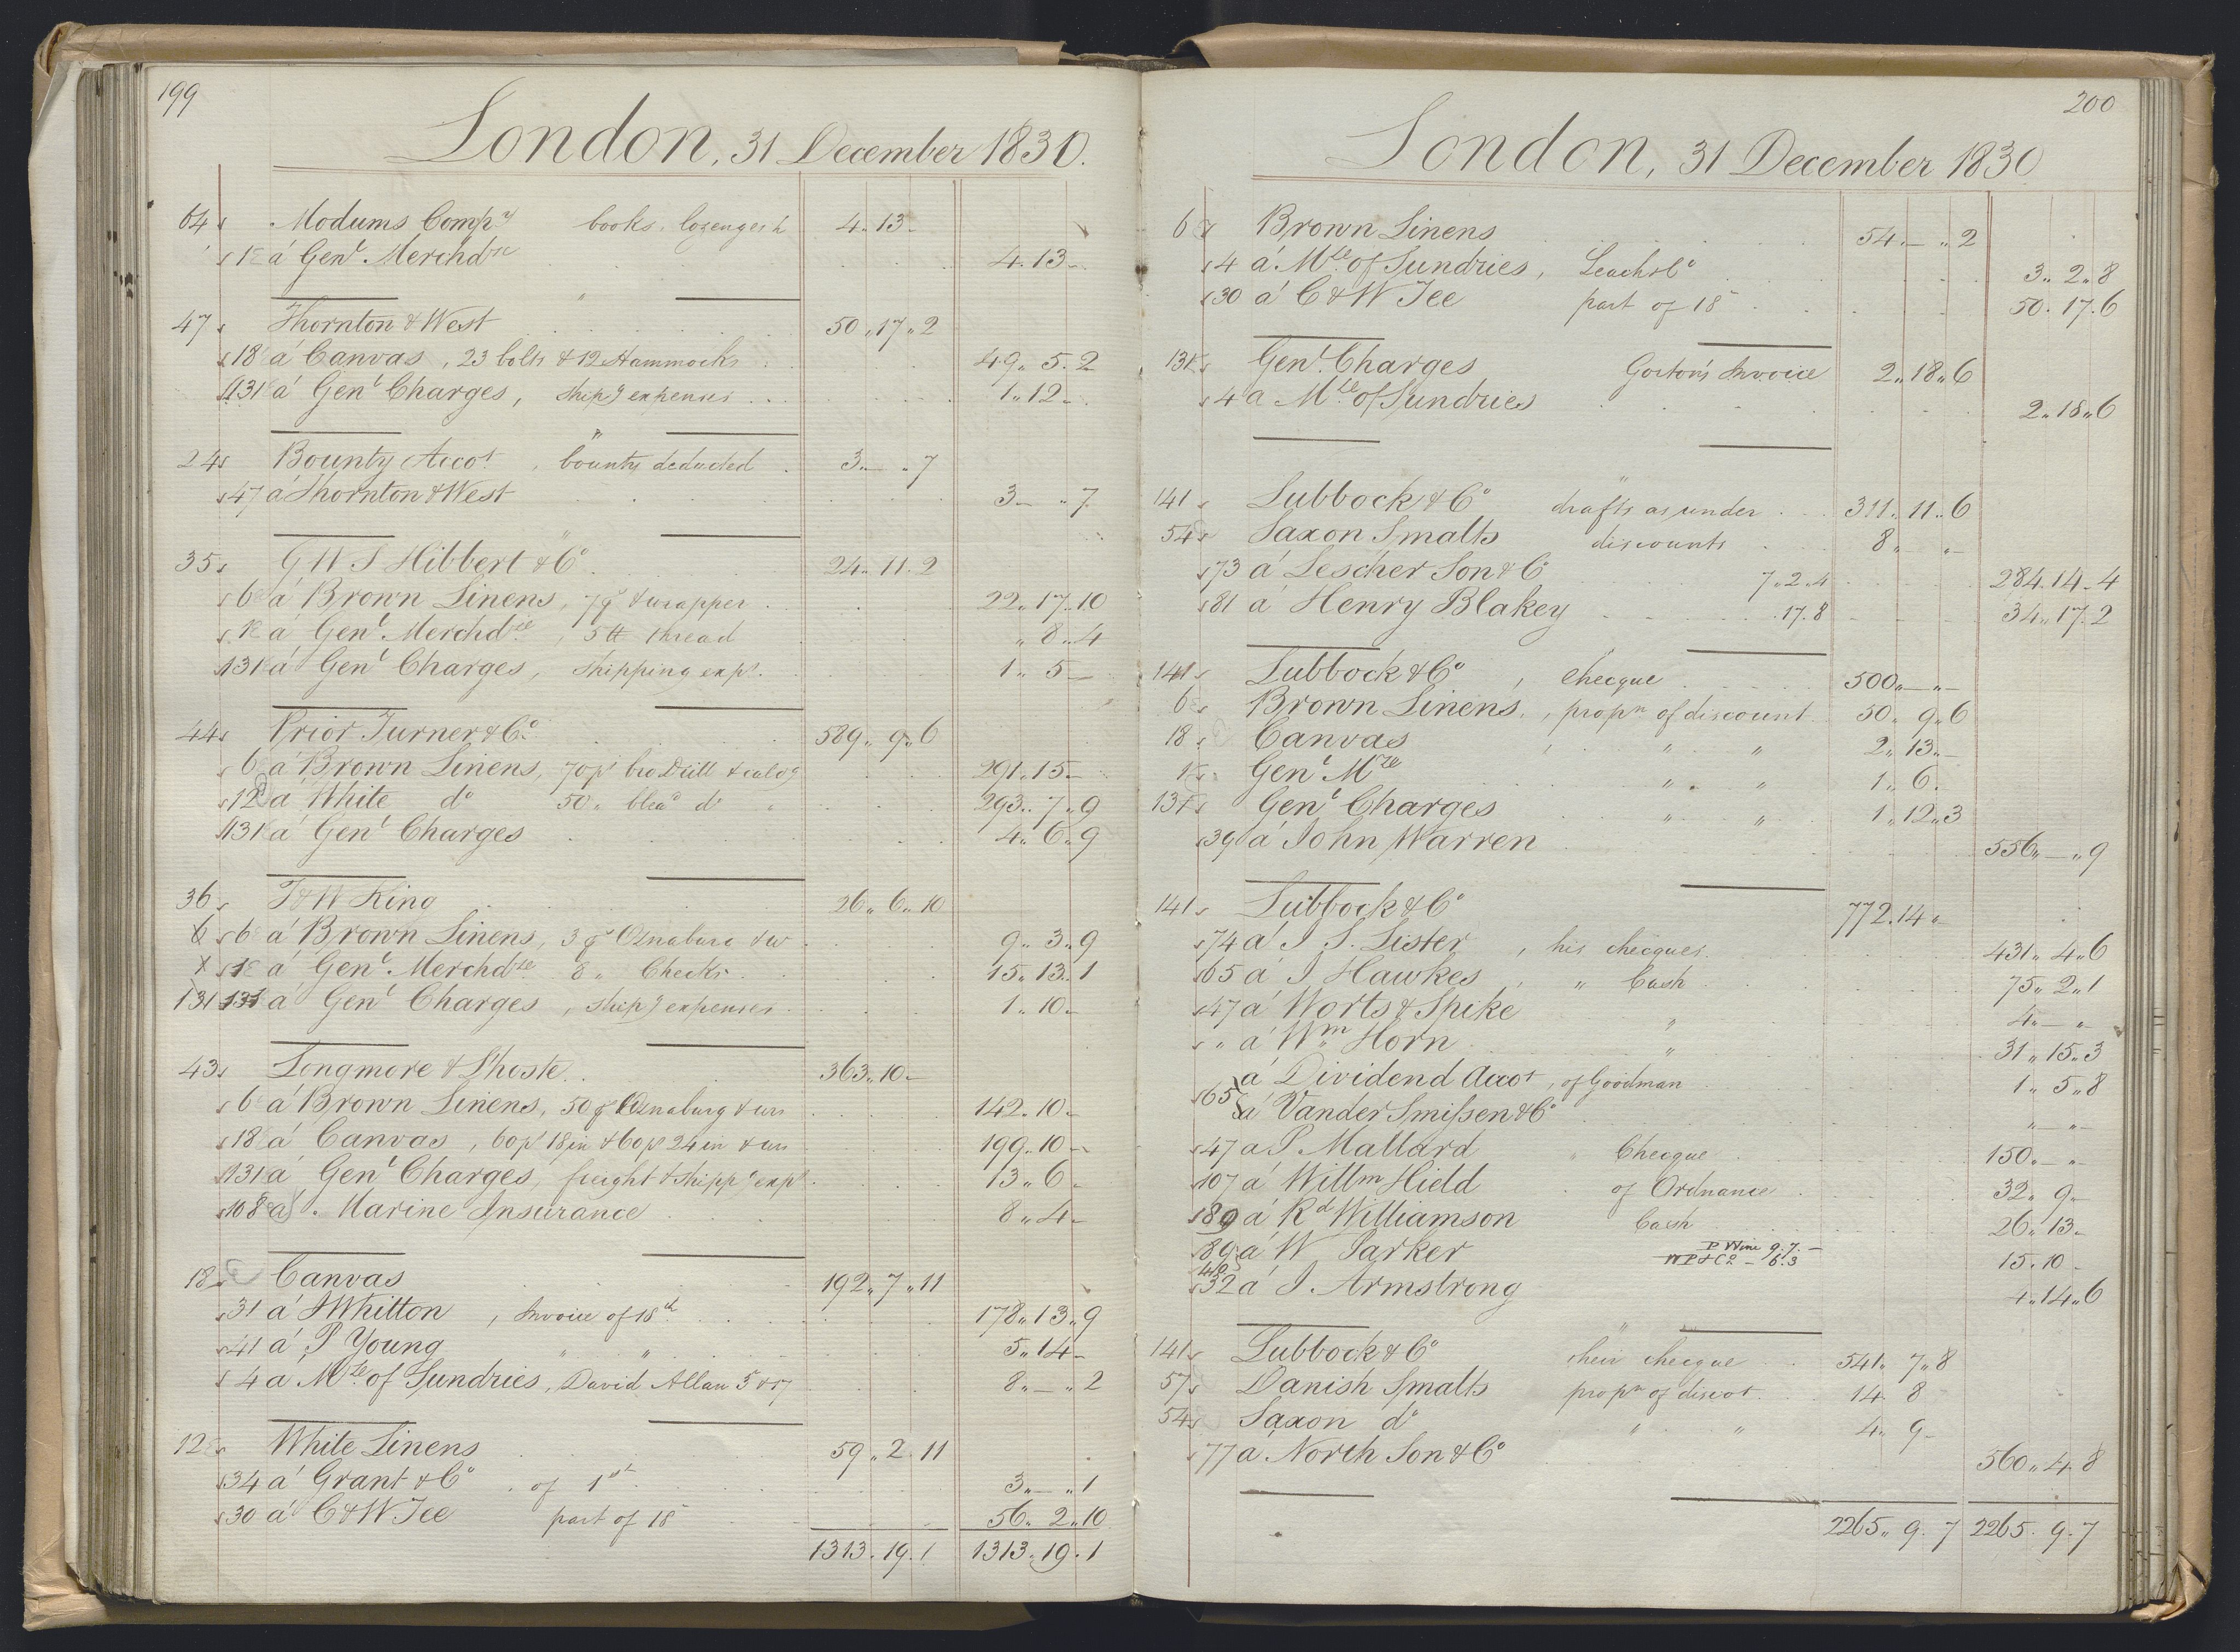 199
London, 31 December 1830.
64 Modums Compy books, lozenges &c 4..13..
1 á Genl. Merchdze 4..13..
47 Thornton & West 50..17..2
18 á Canvas, 23 bolts & 12 Hammocks 49..5..2
131 á Genl Charges, shipg expenses 1..12..
24 Bounty Accot., bounty deducted 3..—..7
47 á Thornton & West 3..—..7
35 G W S Hibbert & Co 24..11..2
6 á Brown Linens, 7 ps & wrapper 22..17..10
1 á Genl. Merchdze, 5 lb thread ..8..4
131 á Genl Charges, shipping exps. 1..5..—
44 Prior Turner & Co. 589..9..6
6 á Brown Linens, 70 ps bro Drill 291..15..—
12 á White do 50 .. blead do 293..7..9
131 á Genl Charges 4..6..9
36 J & W King 26..6..10
6 6 á Brown Linens, 3 ps Osnaburg & w 9..3..9
1 á Genl. Merchdze 8 .. Checks 15..13..1
131 131 á Genl Charges, shipg expenses 1..10..
43 Longmore & L'hoste 363..10..—
6 á Brown Linens, 50 ps Osnaburg & wrs 142..10..
18 á Canvas, 60 ps 18 in & 60 ps 24 in & wrs 199..10..—
131 á Genl Charges, freight & shippg exps 13..6..
108 á Marine Insurance 8..4..
18 Canvas 192..7..11
31 á J Whitton, Invoice of 18th 178..13..9
41 á P Young " " 5..14—
4 a Mze of Sundries, David Allan 5 & 17 8..—..2
12 White Linens 59..2..11
34 á Grant & Co of 1st 3..—..1
30 á C & W Tee part of 18 56..2..10
1313..19..1 1313..19..1
200
London, 31 December 1830
6 Brown Linens 54..—..2
4 á Mze of Sundries, 3..2..8
30 á C & W Tee part of 18 50..17..6
131 Genl. Charges Gorton's Invoice 2..18..6
4 a Mze of Sundries 2..18..6
141 Lubbock & Co drafts as under 311..11..6
54 Saxon Smalts discounts 8..—..—
73 á Lescher Son & Co 7..2..4 284..14..4
81 á Henry Blakey 17..8 34..17..2
141 Lubbock & Co, checque 500..—..—
6 Brown Linens, propn of discount 50..9..6
18 Canvas " " 2..13..—
1 Genl Mze " " 1..6..
131 Genl Charges " " 1..12..3
39 á John Warren 556..—..9
141 Lubbock & Co 772..14..
74 á J S. Lister, his checques 431..4..6
65 á J Hawkes, " Cash 75..2..1
47 á Worts & Spike " 4..—..—
" á Wm Horn " 31..15..3
65 á Dividend Accot, of Goodman 1..5..8
á Vander Smissen & Co ..—..—
47 a P Mallard " Checque 150..—..—
107 á Willm Hield of Ordnance 32..9..
189 á Rd Williamson Cash 26..13..
89 á W Parker P Wine 9..7..— 15..10—
WP & Co — 6..3
40
32 á J. Armstrong 4..14..6
141 Lubbock & Co their checque 541..7..8
57 Danish Smalts propn of discot. 14..8
54 Saxon do " " 4..9—
77 a North Son & Co 560..4..8
2265..9..7 2265..9..7